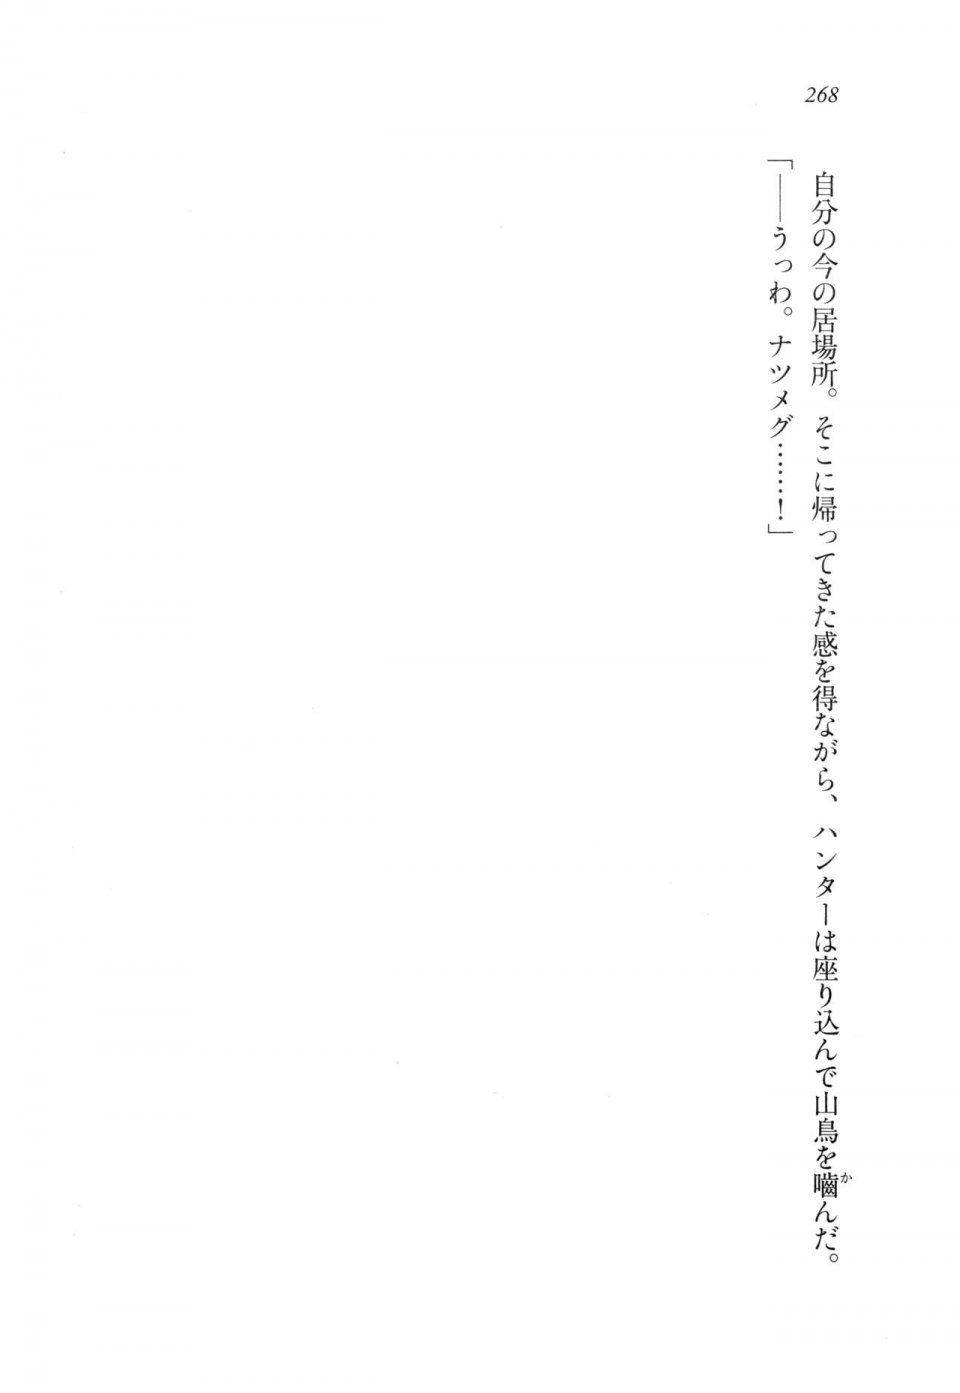 268
自分の今の居場所。そこに帰ってきた感を得ながら、ハンターは座り込んで山鳥を嚙んだ。
か
「――うっわ。ナツメグ……！」